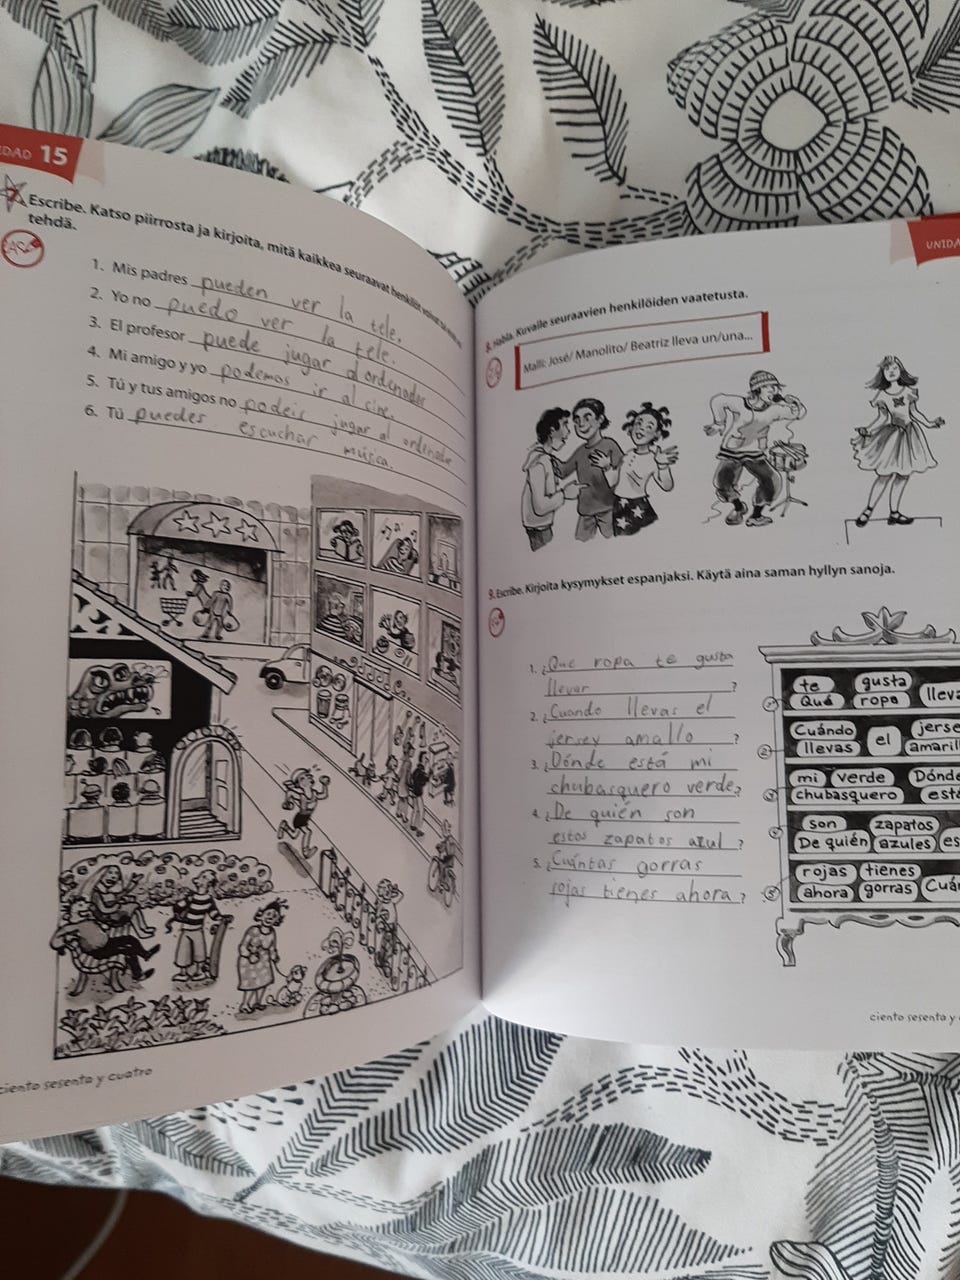 UNIDAD 15
Escribe. Katso piirrosta ja kirjoita, mitä kaikkea seuraavat henkilöt
tehdä.
1. Mis padres pueden ver la tele.
2. Yo no puedo ver la tele.
3. El profesor puede jugar al ordenador
4. Mi amigo y yo podemos ir al cine.
5. Tú y tus amigos no podeis jugar al ordenador
6. Tú puedes escuchar
música.
ciento sesenta y cuatro
UNIDA
8. Habla. Kuvaile seuraavien henkilöiden vaatetusta.
Malli: José/ Manolito/ Beatriz lleva un/una...
9. Escribe. Kirjoita kysymykset espanjaksi. Käytä aina saman hyllyn sanoja.
1. ¿Que ropa te gusta
llevar ?
2. ¿Cuando llevas el
jersey amallo ?
3. ¿Dónde está mi
chubasquero verde?
4. ¿De quién son
estos zapatos azul ?
5. ¿Cuántas gorras
rojas tienes ahora ?
te gusta
Qué ropa lleva
1
Cuándo jerse
llevas el amaril
2
mi verde Dónde
chubasquero est
3
son zapatos
De quién azules es
4
rojas tienes
ahora gorras Cuá
5
ciento sesenta y